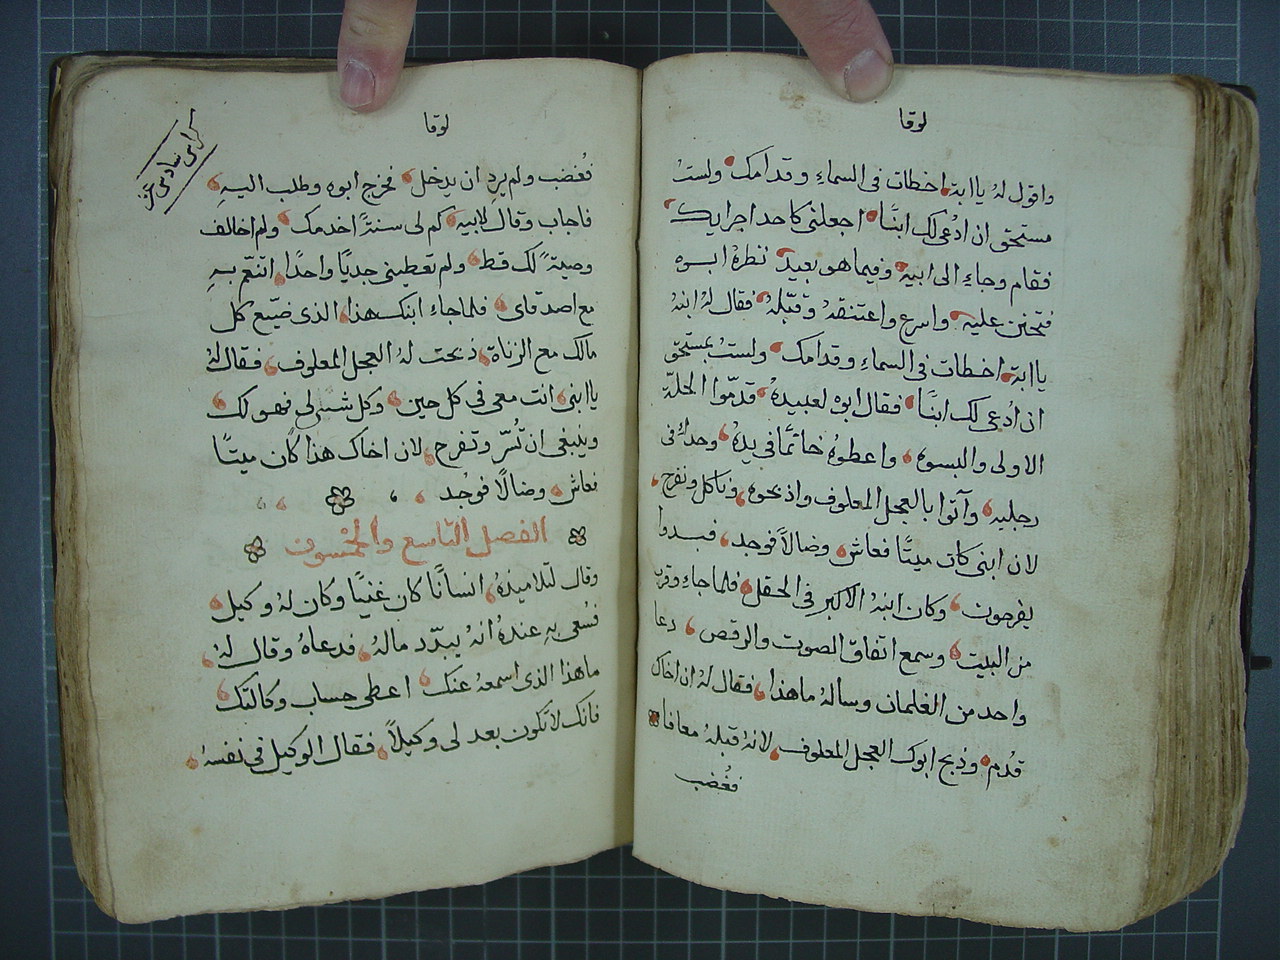 لوقا
واقول لهُ يا ابة اخطات في السماءِ وقدامك ولستُ
مستحق ان ادُعى لك ابنًا اجعلني كاحد اجرايك
فقام وجاءِ الى ابيه وفيما هو بعيد نظرهُ ابوه
فتحنن عليه واسرع واعتنقهُ وقبّلهُ فقال لهُ ابنهُ
يا ابة اخطات في السماءِ وقدامك ولستُ بمستحق
ان ادُعى لك ابنًا فقال ابوه لعبيدهُ قدّموا الحلة
الاولى والبسوه واعطوهُ خاتمًا في يدهُ وحداءً في
رجليه وآتوا بالعجل المعلوف واذبحوه وناكل ونفرح
لان ابني كان ميتًا فعاش وضالاً فوجد فبدوا
يفرحون وكان ابنهُ الاكبر في الحقل فلما جاءِ وقرب
من البيت وسمع اتفاق الصوت والرقص دعا
واحد من الغلمان وسالهُ ماهذا فقال لهُ ان اخاك
قدُم وذبح ابوك العجل المعلوف لانهُ قبلهُ معافا
فغُضب
لوقا
كراس سادس عشر
فغُضب ولم يرد ان يدخل فخرج ابوه وطلب اليهِ
فاجاب وقال لابيه كم لي سنتًة اخدمك ولم اخالف
وصيةً لك قط ولم تعطيني جديًا واحدًا اتنعّم بهِ
مع اصدقاي فلما جاءِ ابنك هذا الذي ضيّع كل
مالك مع الزناة ذبحت لهُ العجل المعلوف فقال لهُ
يا ابني انت معي في كل حين وكل شي لي فهو لك
وينبغي ان تُسّر وتفرح لان اخاك هذا كان ميتًا
فعاش وضالًا فوجُد
الفصل التاسع والخمسون
وقال لتلاميذهُ انسانًا كان غنيًا وكان لهُ وكيل
فسُعى بهِ عندهُ انهُ يبدّد مالهُ فدعاهُ وقال لهُ
ماهذا الذي اسمعهُ عنك اعطى حساب وكالتك
فانك لا تكون بعد لي وكيلاً فقال الوكيل في نفسهُ